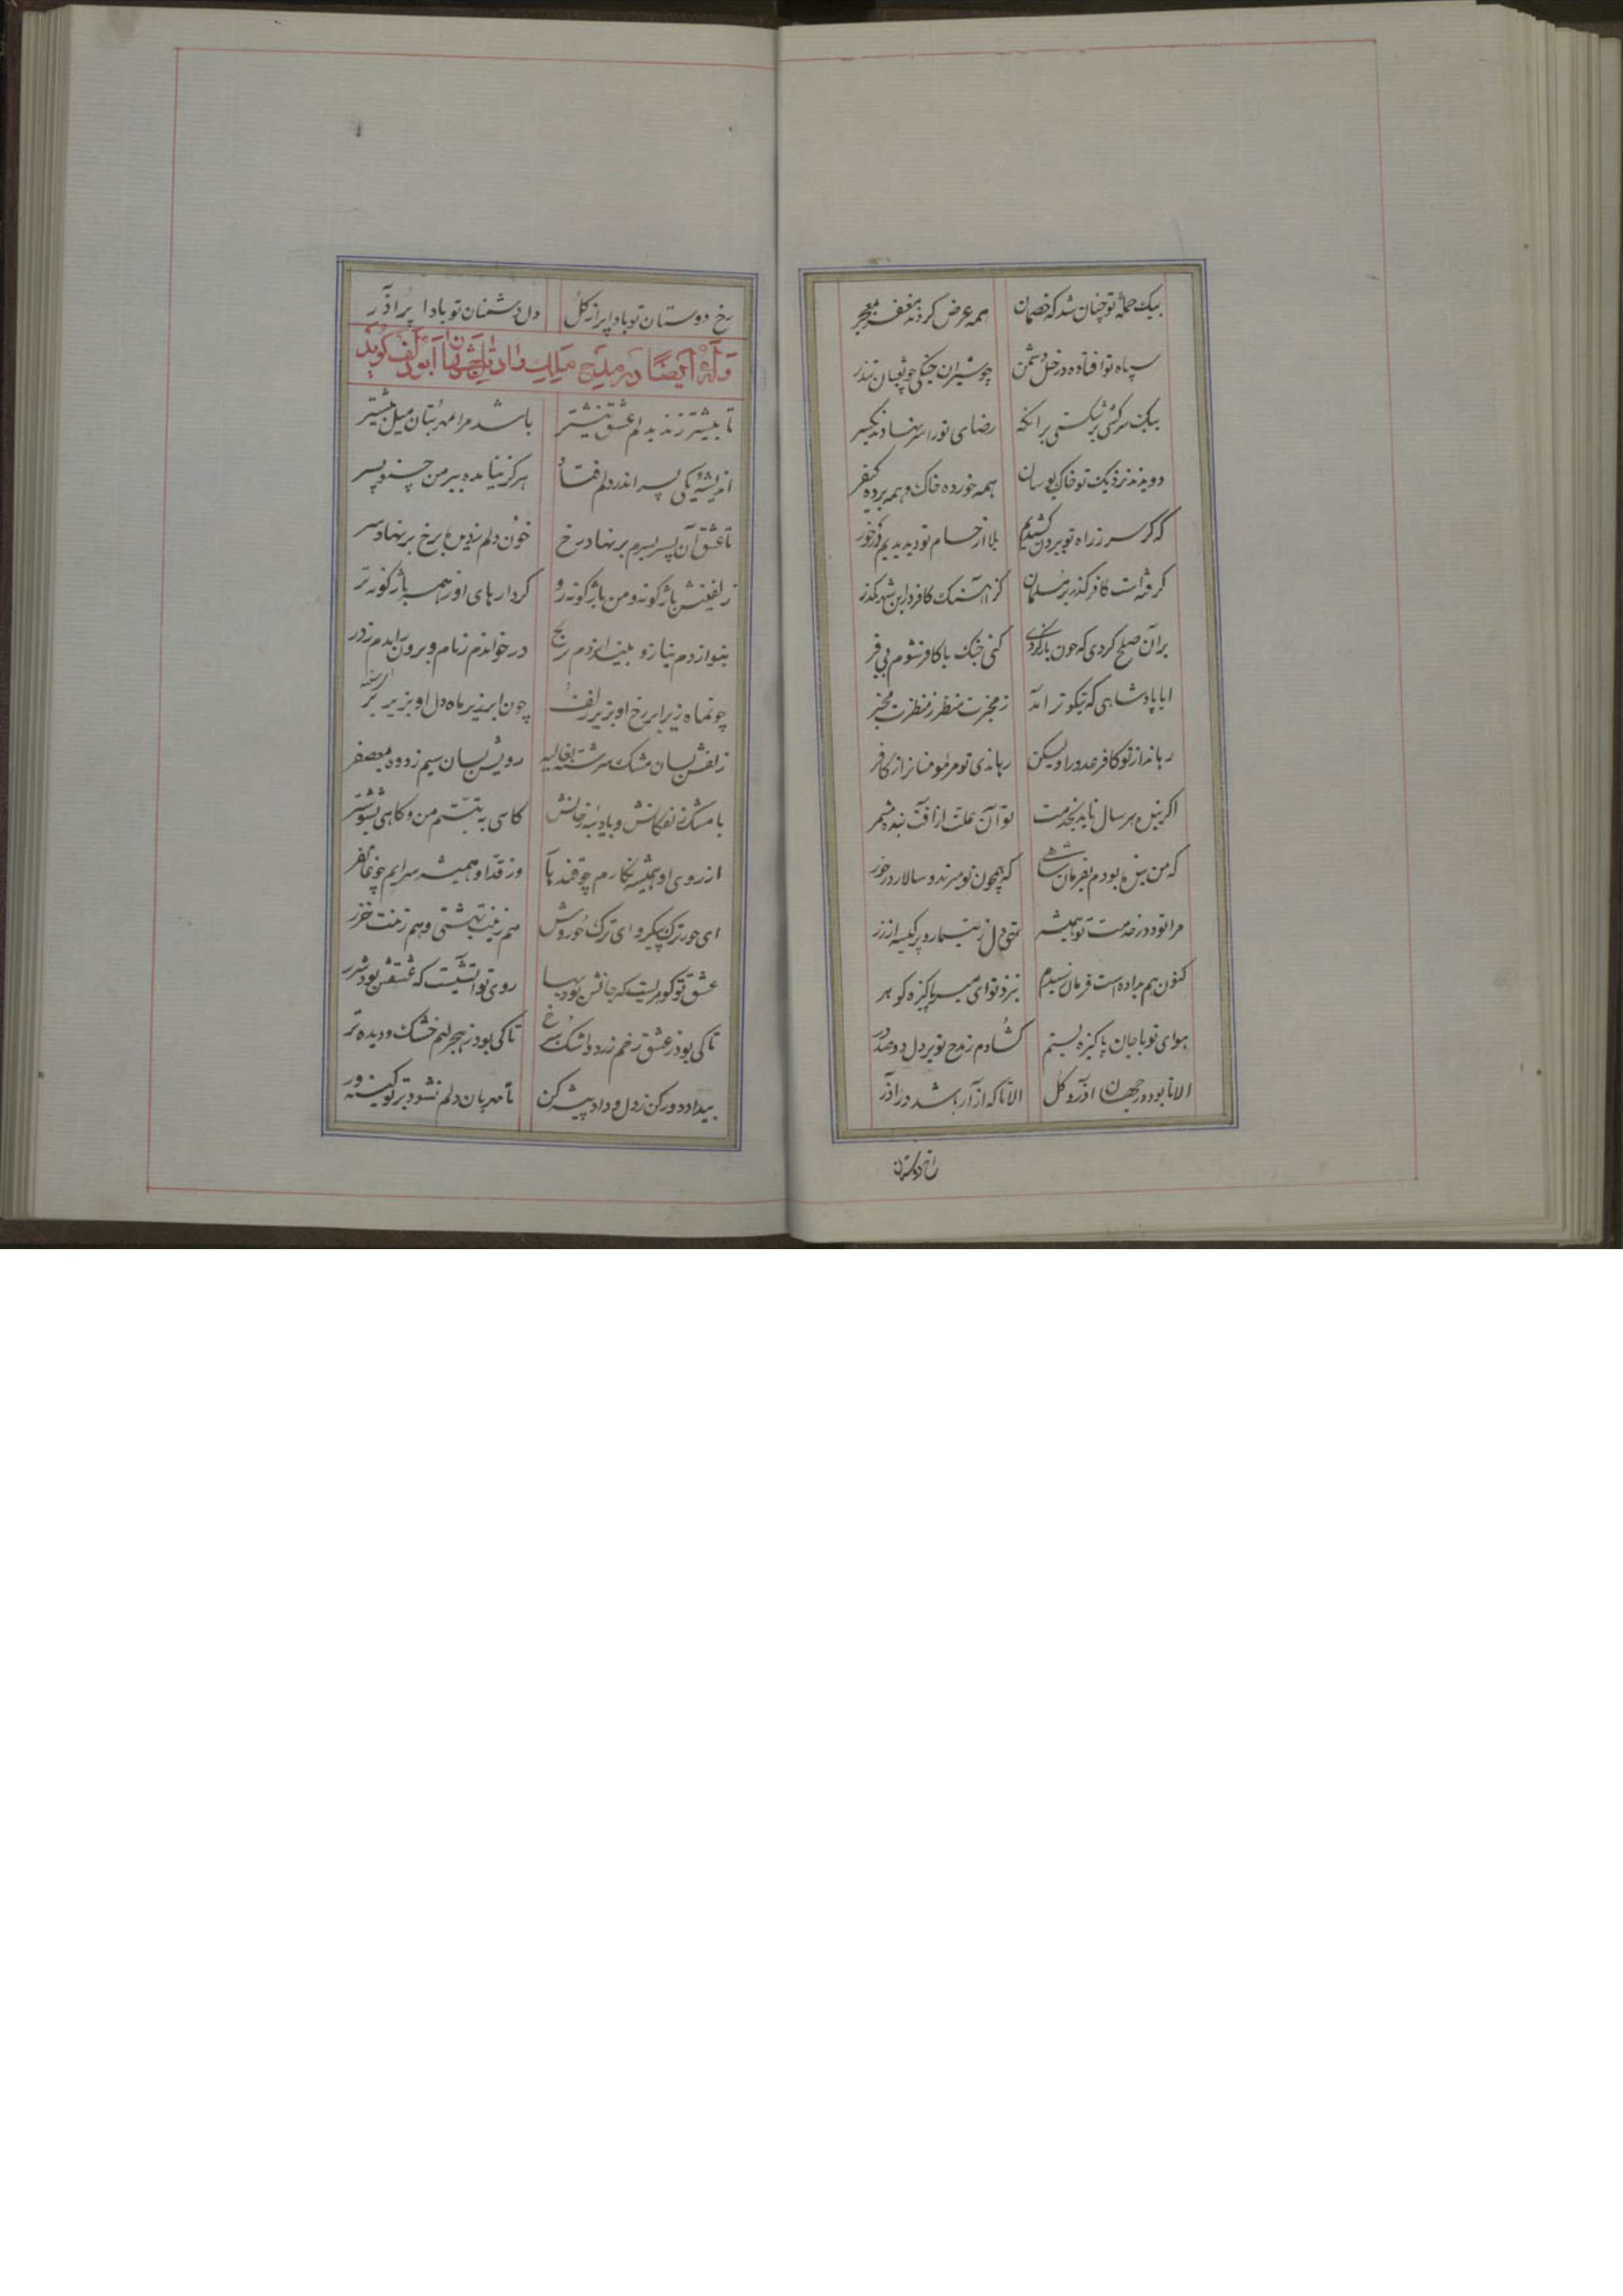 بیک حمله تو چنان شد که خصمان همه عرض کردند مغفر بمعجر
سپاه تو افتاده در خیل دشمن چو شیران جنگی چو پیلان تندر
بیک سرکشی برنکستی برانکه رضای تو را سر نهادند یکسر
دویدند نزدیک تو خاک بوسان همه خورده خاک و همه برده کیفر
که کر سر ز راه تو بیرون کشیدیم بلا از حسام تو دیدیم در خور
کرفته است کافر کذر بر مسلمان کز آهنک کافر در این شهر بکذر
بر آن صلح کردی که چون بازکردی کنی جنک با کافر شوم بی فر
ایا پادشاهی که نیکوتر آمد ز مخبرت منظر ز منظرت مخبر
رهاند از تو کافر عدو را ولیکن رهاندی تو مر مؤمنان را ز کافر
اکر بنده هر سال ناید بخدمت تو آن علت از آفت بنده مشمر
که من بنده بودم بفرمان شاهی که همچون تو میرند و سالار در خور
مرا بود در خدمت تو همیشه تهی دل ز تیمار و پر کیسه از زر
کنون هم مراده است فرمان رسیدم بنزد تو ای میر پاکیزه کوهر
هوای تو با جان پاکیزه بستم کشادم ز مدح تو بر دل دو صد در
الا تا بود در جهان آذر و کل الا تا که از آر باشد در آذر
رخ دوستان
رخ دوستان تو بادا پر از کل دل دشمنان تو بادا پر آذر
وله ایضا در مدیح ملک رادان جهان ابودلف کوید
تا بیشتر زند بدلم عشق نیشتر باشد مرا بمهر بتان میل بیشتر
اندیشه یکی پسر اندر دلم فتاد هرکز نیامده ببر من چنو پسر
تا عشق آن پسر بسرم بر نهاد رخ خون دلم ز دیده برخ بر نهاد سر
زلفینش باژکونه و من باژکونه رو کردارهای او ز همه باژکونه تر
بنوازدم بناز و بیندازدم برنج در خواندم ز بام و برون راندم ز در
چونماه زیر ابر رخ او بزیر زلف چون ابر زیر ماه دل او بزیر بر
زلفش بسان مشک سرشته بغالیه رویش بسان سیم زدوده بمعصفر
با مشک زلفکانش و با دیده زخانش کاسی به تبتم من و کاهی بشوشتر
از روی او همیشه نکارم چو قندهار وز قد او همیشه سرایم چو غاتفر
ای حور ترک پیکر و ای ترک حوروش هم زینت بهشتی و هم زینت خزر
عشق تو کوهریست که جانش بود بها روی تو آتشیست که عشقش بود شرر
تا کی بود ز عشق رخم زرد و اشک سرخ تا کی بود ز هجر لبم خشک و دیده تر
بیداد دور کن ز دل و داد پیشه کن تا مهربان دلم نشود بر تو کینه ور